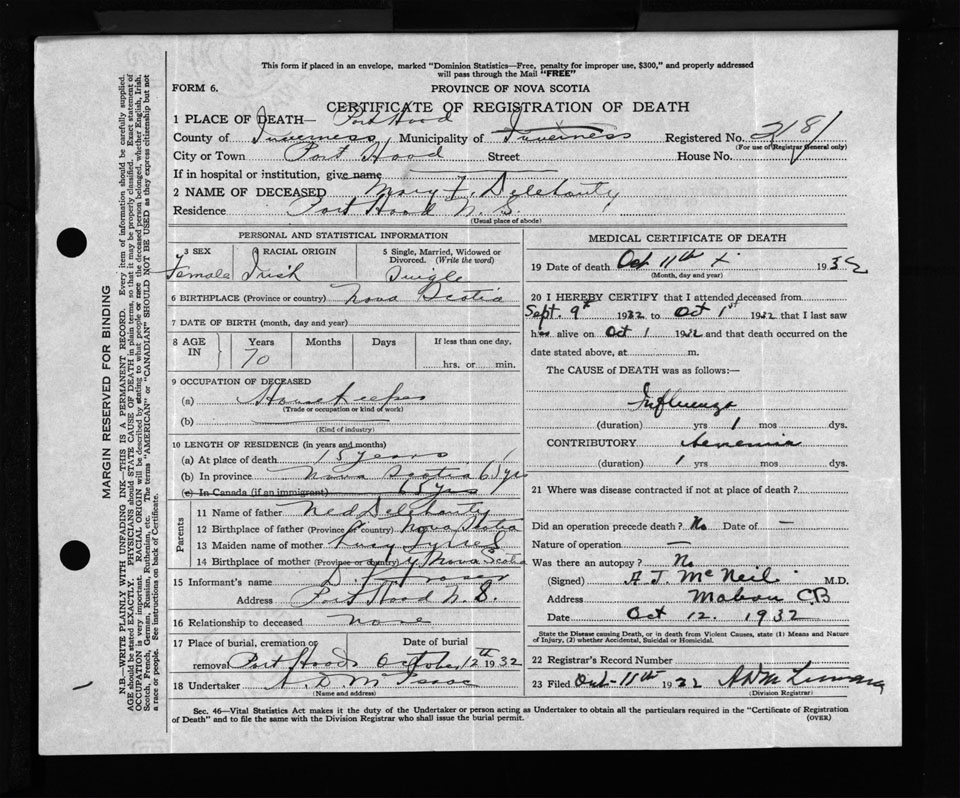 This form if placed in an envelope, marked "Dominion Statistics—Free, penalty for improper use, $300," and properly addressed
will pass through the Mail "FREE"
FORM 6.
PROVINCE OF NOVA SCOTIA
CERTIFICATE OF REGISTRATION OF DEATH
1 PLACE OF DEATH— Port Hood
County of Inverness Municipality of Inverness Registered No. 218
(For use of Registrar General only)
City or Town Port Hood Street House No.
If in hospital or institution, give name
2 NAME OF DECEASED Mary F. Delehanty
Residence Port Hood N. S.
(Usual place of abode)
PERSONAL AND STATISTICAL INFORMATION
3 SEX 4 RACIAL ORIGIN 5 Single, Married, Widowed or
Divorced. (Write the word)
Female Irish Single
6 BIRTHPLACE (Province or country) Nova Scotia
7 DATE OF BIRTH (month, day and year)
8 AGE IN Years Months Days If less than one day,
70 hrs. or min.
9 OCCUPATION OF DECEASED
(a) Housekeeper
(Trade or occupation or kind of work)
(b)
(Kind of industry)
10 LENGTH OF RESIDENCE (in years and months)
(a) At place of death 15 years
(b) In province Nova Scotia 65 yrs
(c) In Canada (if an immigrant) 65 yrs
Parents
11 Name of father Ned Delehanty
12 Birthplace of father (Province or country) Nova Scotia
13 Maiden name of mother
14 Birthplace of mother (Province or country) Nova Scotia
15 Informant's name D. F. Fraser
Address Port Hood N. S.
16 Relationship to deceased none
17 Place of burial, cremation or Date of burial
removal Port Hood October 12th 1932
18 Undertaker A. D. McIsaac
(Name and address)
MEDICAL CERTIFICATE OF DEATH
19 Date of death Oct 11th 1932
(Month, day and year)
20 I HEREBY CERTIFY that I attended deceased from
Sept. 9th 1932 to Oct 1st 1932 that I last saw
her alive on Oct 1 1932 and that death occurred on the
date stated above, at m.
The CAUSE of DEATH was as follows:—
Influenza
(duration) yrs 1 mos dys.
CONTRIBUTORY Aenemia
(duration) 1 yrs mos. dys.
21 Where was disease contracted if not at place of death?
Did an operation precede death? No Date of —
Nature of operation —
Was there an autopsy? No
(Signed) A J. McNeil M.D.
Address Mabou CB
Date Oct 12. 1932
State the Disease causing Death, or in death from Violent Causes, state (1) Means and Nature
of Injury, (2) whether Accidental, Suicidal or Homicidal.
22 Registrar's Record Number
23 Filed Oct-15th 1932
(Division Registrar)
Sec. 46—Vital Statistics Act makes it the duty of the Undertaker or person acting as Undertaker to obtain all the particulars required in the "Certificate of Registration
of Death" and to file the same with the Division Registrar who shall issue the burial permit.
(OVER)
MARGIN RESERVED FOR BINDING
N.B.—WRITE PLAINLY WITH UNFADING INK—THIS IS A PERMANENT RECORD. Every item of information should be carefully supplied.
AGE should be stated EXACTLY. PHYSICIANS should STATE CAUSE OF DEATH in plain terms, so that it may be properly classified. Exact statement of
OCCUPATION is very important. RACIAL ORIGIN will be described by stating to what people or race the deceased person belonged, whether English, Irish,
Scotch, French, German, Russian, Ruthenian, etc. The terms "AMERICAN" or "CANADIAN" SHOULD NOT BE USED as they express citizenship but not
a race or people. See instructions on back of Certificate.